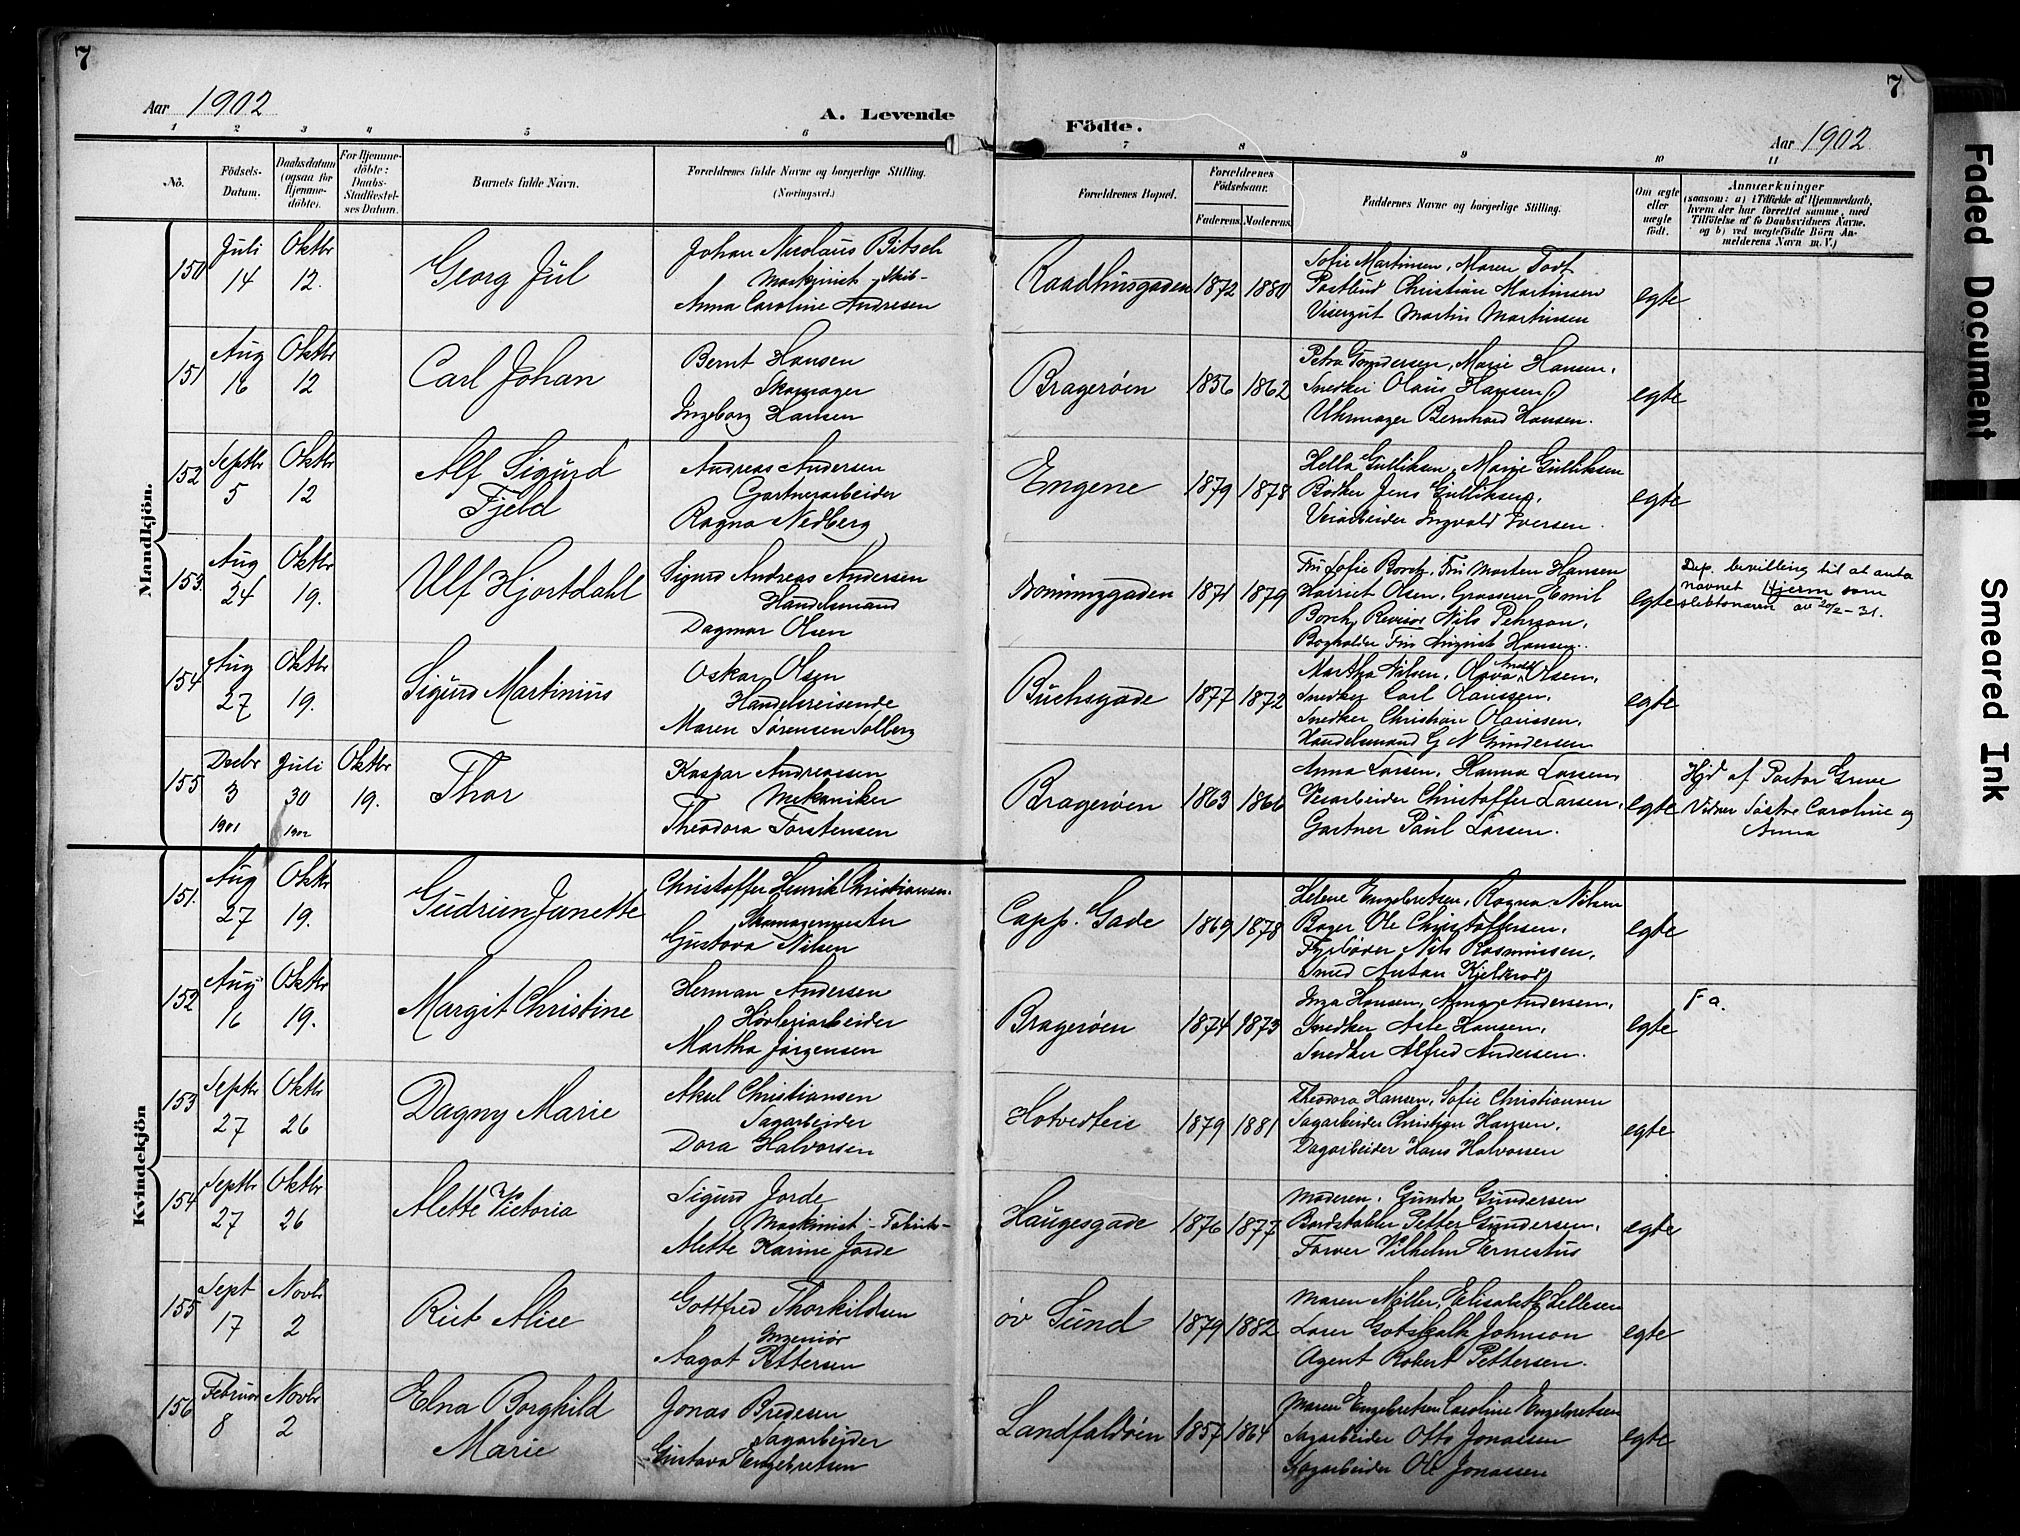 7
7
Aar 1902
A. Levende
Födte.
Aar 1902
1 2 3 4 5 6 7 8 9 10 11
No.
Födsels-
Datum.
Daabsdatum
(ogsaa for
Hjemme-
döbte).
For Hjemme-
döbte:
Daabs-
Stadfæstel-
ses Datum.
Barnets fulde Navn.
Forældrenes fulde Navne og borgerlige Stilling.
(Næringsvei.)
Forældrenes Bopæl.
Forældrenes
Födselsaar.
Faderens. Moderens.
Faddernes Navne og borgerlige Stilling.
Om ægte
eller
uægte
födt.
Anmærkninger
(saasom: a) i Tilfælde af Hjemmedaab,
hvem der har forrettet samme, med
Tilföielse af to Daabsvidners Navne.
og b) ved uægtefödte Börn An-
melderens Navn m. V.)
Mandkjön.
150
Juli
14
Oktbr
12.
Georg Jül
Johan Nicolaus Bitsch
Maskinist - Skib-
Anna Caroline Andresen
Raadhusgaden
1872
1880
Sofie Martinsen, Maren Todt
Postbud Christian Martinsen
Visergut Martin Martinsen
egte
151
Aug
16
Oktbr
12
Carl Johan
Bernt Hansen
Skomager
Ingeborg Hansen
Bragerøen
1856
1862
Petra Gundersen, Marie Hansen,
Snedker Olaus Hansen
Uhrmager Bernhard Hansen.
egte
152
Septbr
5
Oktbr
12
Alf Sigurd
Fjeld
Andreas Andersen
Gartnerarbeider
Ragna Nedberg
Engene
1879
1878
Hella Gulliksen, Marie Gulliksen
Bødker Jens Gulliksen,
Veiarbeider Ingvald Iversen.
egte
153.
Aug
24
Oktbr
19.
Ulf Hjortdahl
Sigurd Andreas Andersen
Handelsmand
Dagmar Olsen
1871
1879
Fru Sofie Borch, Fru Morten Hansen
Harriet Olsen, Grosserer Emil
Borch, Revisor Nils Pehrson,
Bogholder Fin August Hansen.
egte
Dep. bevilling til at anta
navnet Hjerm som
slektsnavn av 20/2-31.
154
Aug
27
Oktbr
19.
Sigurd Martinius
Oskar Olsen
Handelsreisende
Maren Sørensen Solberg
Buchsgade
1877
1872
Martha Nilsen, Olava Olsen,
Snedker Carl Olaussen,
Snedker Christian Olaussen,
Handelsmand G N Gundersen
egte
155
Decbr
3
1901
Juli
30
1902
Oktbr
19.
Thor
Kaspar Andreassen
Mekaniker
Theodora Torstensen
Bragerøen
1863
1866
Anna Larsen, Hanna Larsen,
Veiarbeider Christoffer Larsen,
Gartner Paul Larsen.
egte
Hjd af Pastor Greve
Vidner Søstre Caroline og
Anna
Kvindekjön
151.
Aug
27
Oktbr
19.
Gudrun Janette
Christoffer Henrik Christiansen.
Skomagermester
Gustava Nilsen
Capp. Gade
1869
1878
Helene Engebretsen, Ragna Nilsen
Bager Ole Christoffersen,
Fyrbøder Nils Rasmussen,
Smed Anton
egte
152
Aug
16
Oktbr
19.
Margit Christine
Herman Andersen
Høvleriarbeider
Martha Jørgensen
Bragerøen
1874
1873
Inga Hansen, Anna Andersen,
Snedker Axle Hansen,
Snedker Alfred Andersen.
egte
Fa.
153
Septbr
27
Oktbr
26
Dagny Marie
Aksel Christiansen
Sagarbeider
Dora Halvorsen
Hotvedtvei
1879
1881
Theodora Hansen, Sofie Christiansen
Sagarbeider Christian Hansen,
Dagarbeider Hans Halvorsen
egte
154
Septbr
27
Oktbr
26
Alette Victoria
Sigurd Jorde
Maskinist - Fabriks-
Alette Karine Jorde
Haugesgade
1876
1877
Moderen, Gunda Gundersen
Bordstabler Petter Gundersen,
Farver Vilhelm Ernestus
egte
155
Sept
17
Novbr
2
Rut Alice
Gottfred Thorkildsen
Ingeniør
Aagot Pettersen
øv Sund
1879
1882
Maren Møller, Elisabeth Lellesen
Lærer Gotskalk Johnson
Agent Robert Pettersen.
egte
156
Februar
8
Novbr
2
Elna Borghild
Marie
Jonas Bredesen
Sagarbeider
Gustava Engebretsen
Landfaldøen
1857
1864
Maren Engebretsen Caroline Engebretsen
Sagarbeider Otto Jonassen
Sagarbeider Ole Jonassen
egte
Faded Document
Smeared Ink